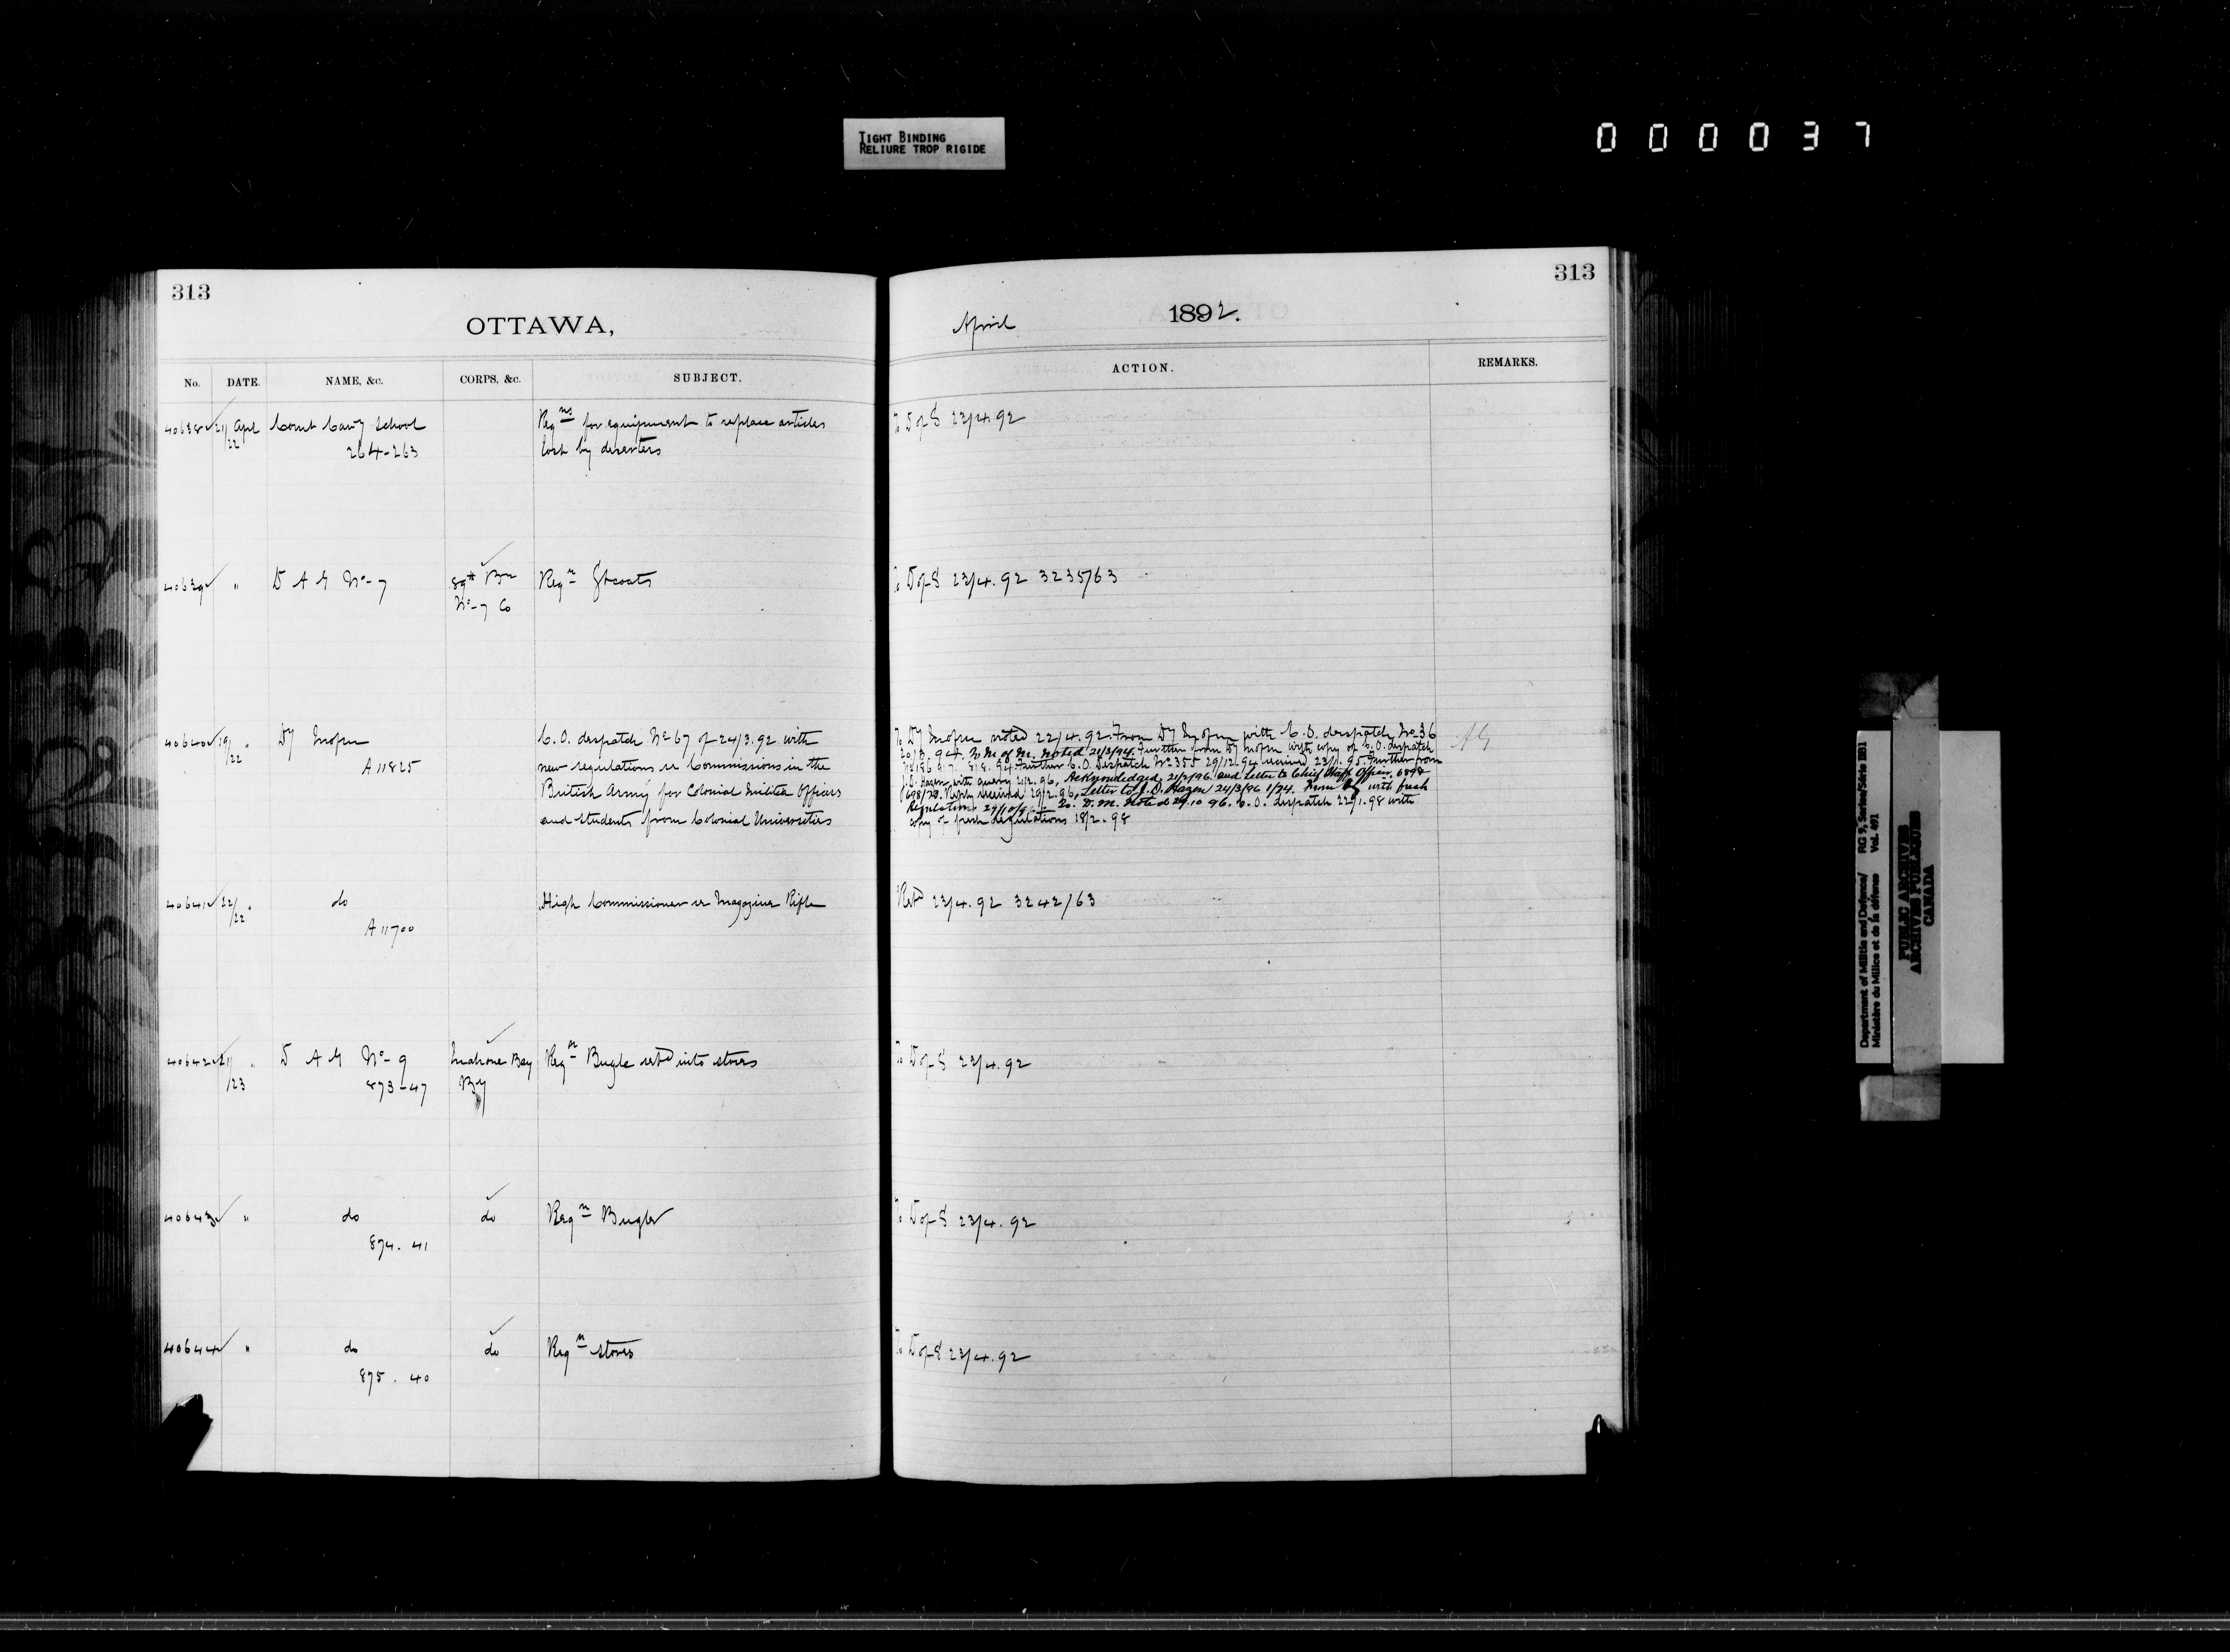 TIGHT BINDING
RELIURE TROP RIGIDE
000037
313
OTTAWA,
No. DATE. NAME, &c. CORPS, &c. SUBJECT.
40638 21/22 Apl Comt Cavy School Reqns for equipment to replace articles
264-263 lost by deserters
40639 " D A G No-7 89th Bn Reqn Gtcoats
No-7 Co
40640 19/22 " Dy C.O. despatch No 67 of 24/3.92 with
A 11825 new regulations re Commissions in the
British Army for Colonial Militia Officers
and students from Colonial Universities
40641 22/22 " do High Commissioner re Magazine Rifle
A 11700
40642 21/23 " D A G No-9 Mahone Bay Reqn Bugle retd into stores
873-47 By
40643 " do do Reqn Bugler
874. 41
40644 " do do Reqn stores
875. 40
313
April 1892.
ACTION. REMARKS.
To D of S 23/4.92
To D of S 23/4.92 3235/63
To Dy noted 22/4.92. From Dy with C.O. despatch No 36
To M of M. Noted 21/3/94. Further from Dy with copy of C.O. despatch
Further C.O. Despatch No 355 29/12.94 received 23/1.95. Further from
with query 2/2.96. Acknowledged 21/2/96 and Letter to Chief Staff Officer
Reply received 29/2.96. Letter to J.D. Hazen 24/3/96 1/74. From Dy with fresh
Regulations 29/10/96. To D.M. Noted 29.10 96. C.O. despatch 22/1.98 with
copy of fresh regulations 18/2.98
Retd 23/4.92 3242/63
To D of S 23/4.92
To D of S 23/4.92
To D of S 23/4.92
Department of Militia and Defence/ RG 9, Series/Série IIB1
Ministère du Milice et de la défense Vol. 491
PUBLIC ARCHIVES
ARCHIVES PUBLIQUES
CANADA